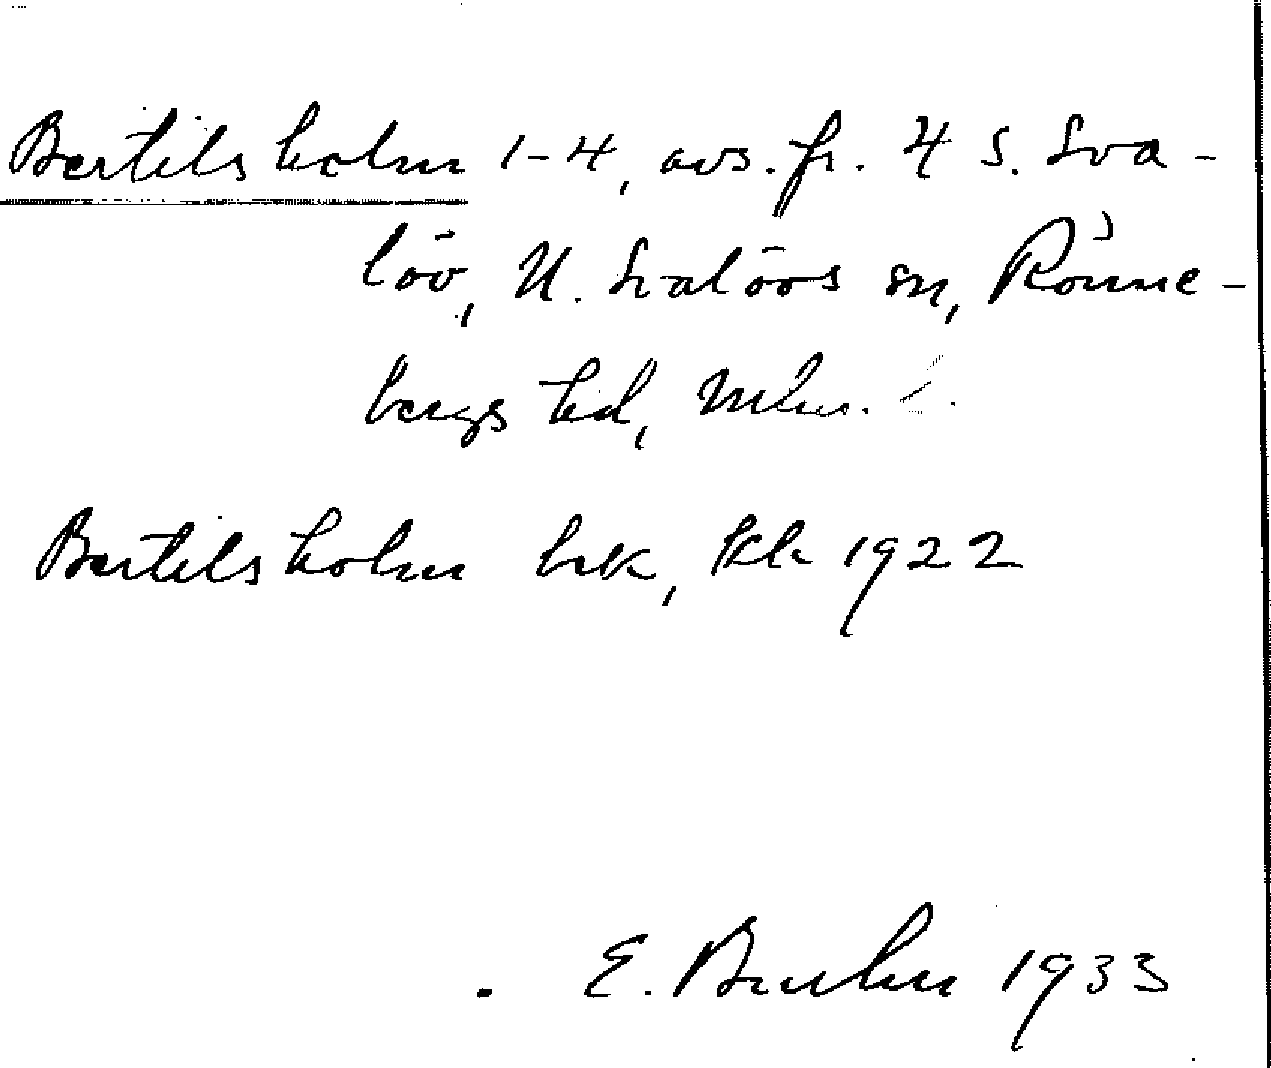 Bertilsholm 1-4, avs. fr. 4 S. Sva-
löv, N. Svalövs sn, Rönne-
bergs hd, Mlm.
Bertilsholm hrk, Kk 1922
E. Bruhn 1933